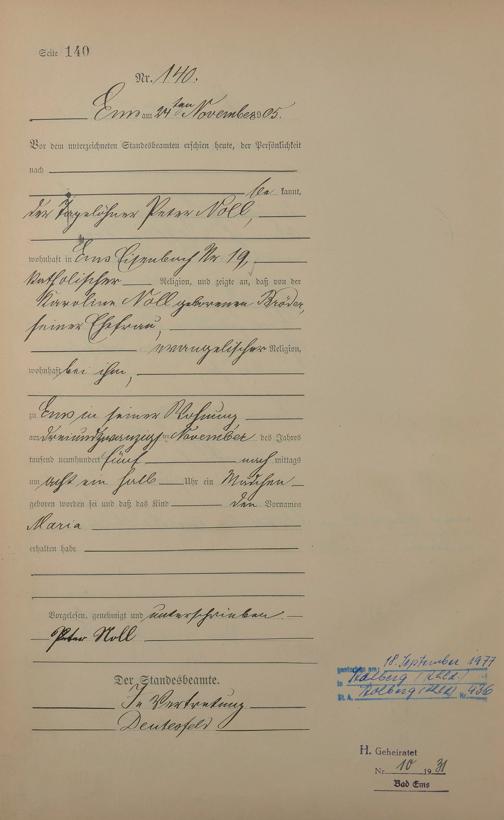 Seite 140
Nr. 140.
Ems am 24ten November 1905.
Vor dem unterzeichneten Standesbeamten erschien heute, der Persönlichkeit
nach
be kannt,
der Tagelöhner Peter Noll,
wohnhaft in Ems Eisenbach Nr 19,
katholischer Religion, und zeigte an, daß von der
Karoline Noll geborenen Bröder,
seiner Ehefrau,
evangelischer Religion,
wohnhaft bei ihm,
zu Ems in seiner Wohnung
am dreiundzwanzigsten November des Jahres
tausend neunhundert fünf nach mittags
um acht ein halb Uhr ein Mädchen
geboren worden sei und daß das Kind den Vornamen
Maria
erhalten habe
Vorgelesen, genehmigt und unterschrieben
Peter Noll
Der Standesbeamte.
In Vertretung
gestorben am: 18. September 1977
in Stolberg (Rhld.)
St. A. Stolberg (Rhld) Nr. 436
H. Geheiratet
Nr. 10 1931
Bad Ems